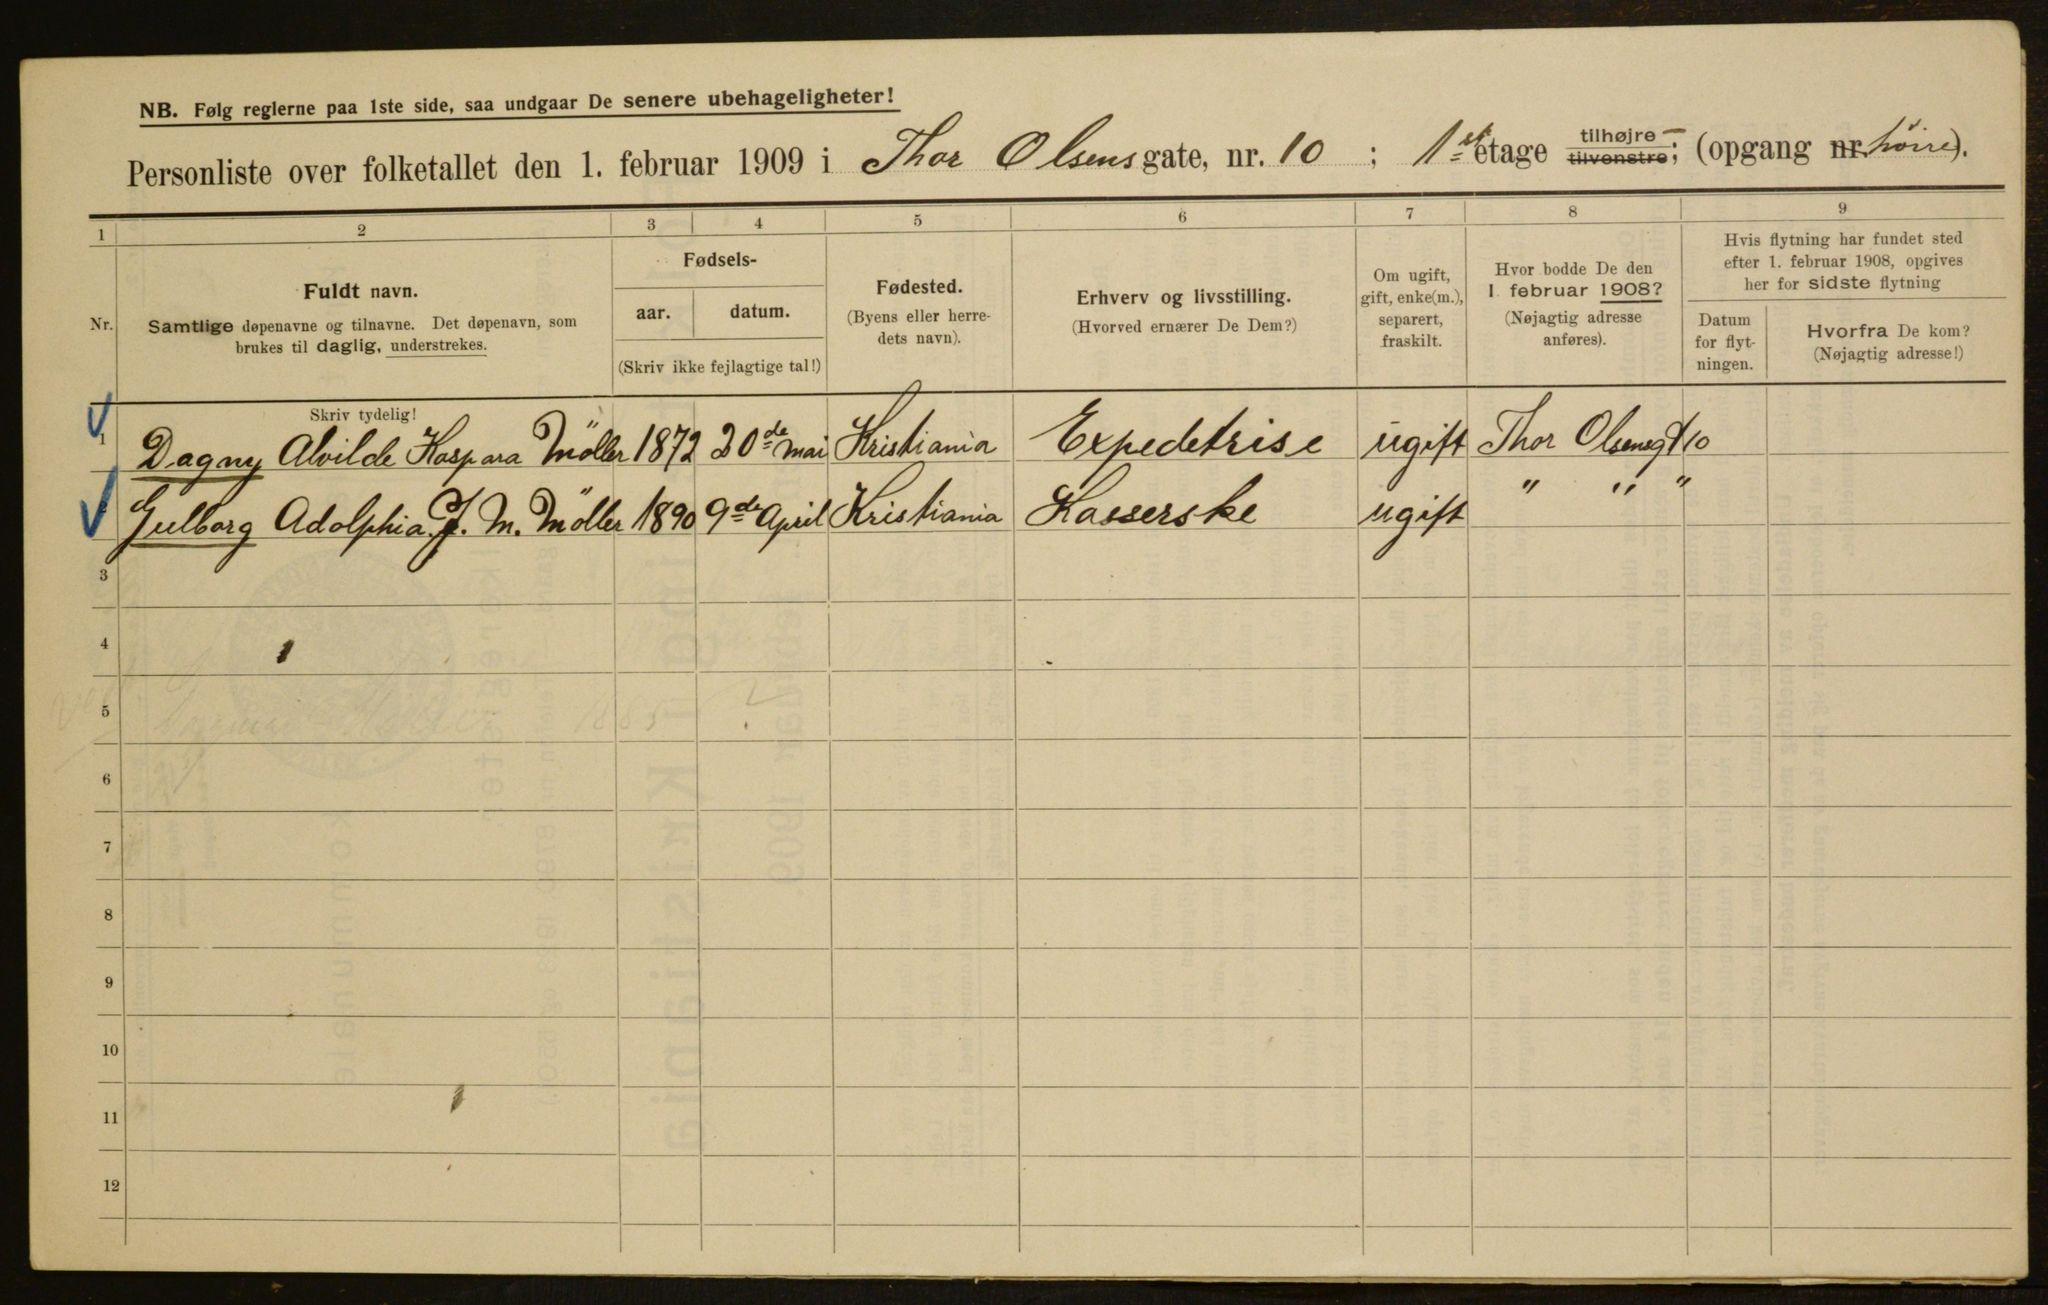 NB. Følg reglerne paa 1ste side, saa undgaar De senere ubehageligheter!
Personliste over folketallet den 1. februar 1909 i Thor Olsens gate, nr. 10 ; 1ste etage tilhøjre tilvenstre; (opgang nr. höire).
1 2 3 4 5 6 7 8 9
Nr.
Fuldt navn.
Samtlige døpenavne og tilnavne. Det døpenavn, som
brukes til daglig, understrekes.
Fødsels-
aar. datum.
(Skriv ikke fejlagtige tal!)
Fødested.
(Byens eller herre-
dets navn).
Erhverv og livsstilling.
(Hvorved ernærer De Dem?)
Om ugift,
gift, enke(m.),
separert,
fraskilt.
Hvor bodde De den
1. februar 1908?
(Nøjagtig adresse
anføres).
Hvis flytning har fundet sted
efter 1. februar 1908, opgives
her for sidste flytning
Datum
for flyt-
ningen.
Hvorfra De kom?
(Nøjagtig adresse!)
Skriv tydelig!
1 Dagny Alvilde Kaspara Möller 1872 20de Mai Kristiania Expedetrise ugift Thor Olsensgt 10
2 Gulborg Adolphia J. M. Möller 1890 9de April Kristiania Kasserske ugift " " "
3
4
5
6
7
8
9
10
11
12